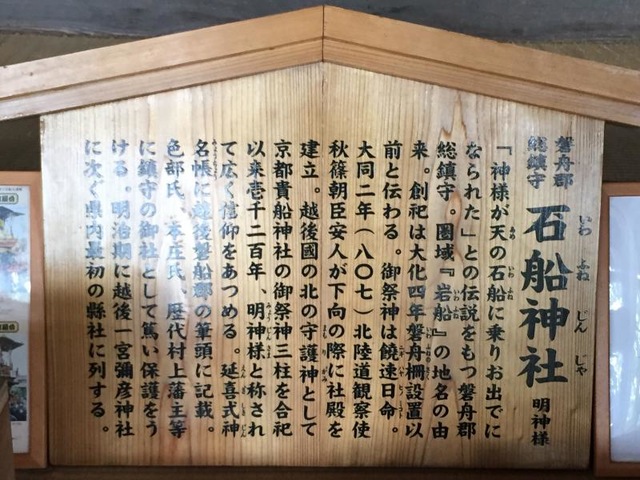 磐舟郡
総鎮守
石船神社
いわ ふね じん じゃ
明神様
「神様が天の石船に乗りお出でに
なられた」との伝説をもつ磐舟郡
総鎮守。圏域『岩船』の地名の由
来。創祀は大化四年磐舟柵設置以
前と伝わる。御祭神は饒速日命。
大同二年(八〇七)北陸道観察使
秋篠朝臣安人が下向の際に社殿を
建立。越後國の北の守護神として
京都貴船神社の御祭神三柱を合祀
以来壱千二百年、明神様と称され
て広く信仰をあつめる。延喜式神
名帳に越後磐船郡の筆頭に記載。
色部氏、本庄氏、歴代村上藩主等
に鎮守の御社として篤い保護をう
ける。明治期に越後一宮彌彦神社
に次ぐ県内最初の縣社に列する。